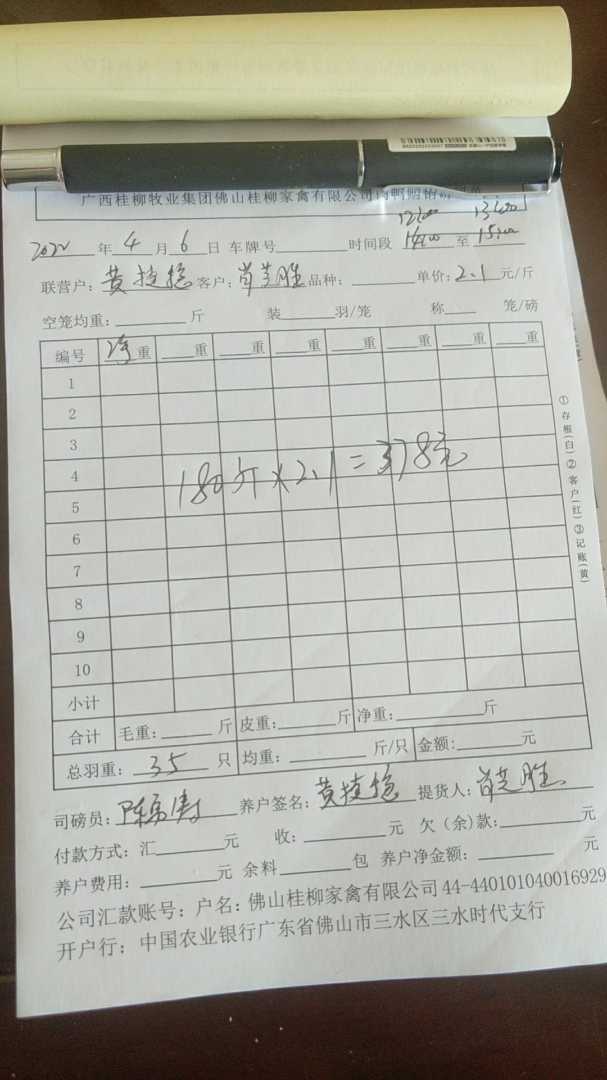 广西桂柳牧业集团佛山桂柳家禽有限公司肉鸭赊销
2022年4月6日 车牌号 时间段 14:00 至 15:00
联营户：黄捷稳 客户：肖芝胜 品种： 单价：2.1元/斤
空笼均重： 斤 装 羽/笼 称 笼/磅
编号 净重 重 重 重 重 重 重 重
1
2
3
4
180斤×2.1=378元
5
6
7
8
9
10
小计
合计 毛重： 斤 皮重： 斤 净重： 斤
总羽重：35只 均重： 斤/只 金额： 元
司磅员： 养户签名：黄捷稳 提货人：肖芝胜
付款方式：汇 元 收： 元 欠（余）款： 元
养户费用： 元 余料 包 养户净金额： 元
公司汇款账号：户名：佛山桂柳家禽有限公司 44-440101040016929
开户行：中国农业银行广东省佛山市三水区三水时代支行
①存根（白）②客户（红）③记账（黄）